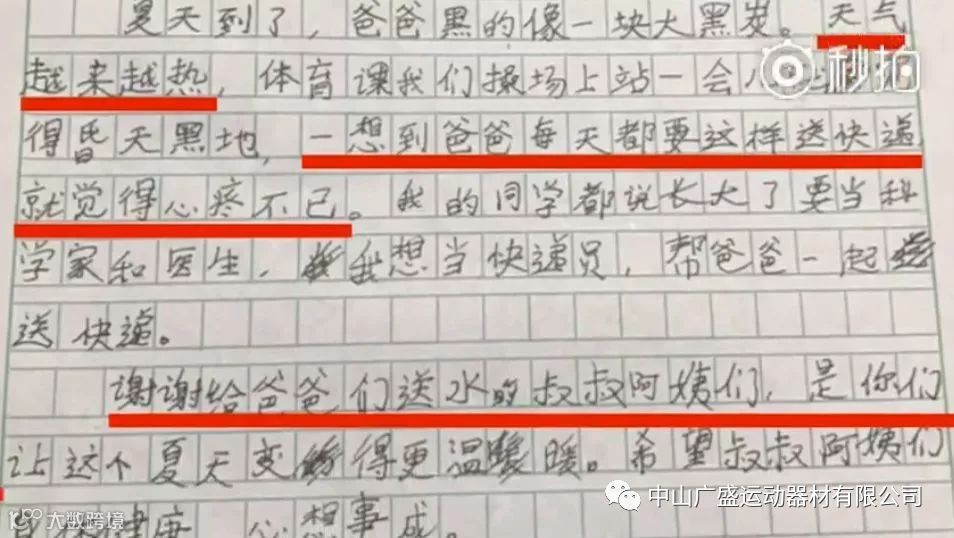 夏天到了，爸爸黑的像一块大黑炭。天气
秒拍
越来越热，体育课我们操场上站一会儿
得昏天黑地，一想到爸爸每天都要这样送快递
就觉得心疼不已。我的同学都说长大了要当科
学家和医生，我想当快递员，帮爸爸一起
送快递。
谢谢给爸爸们送水的叔叔阿姨们，是你们
让这个夏天变得更温暖。希望叔叔阿姨们
中山广盛运动器材有限公司
大数跨境
身体健康 心想事成。